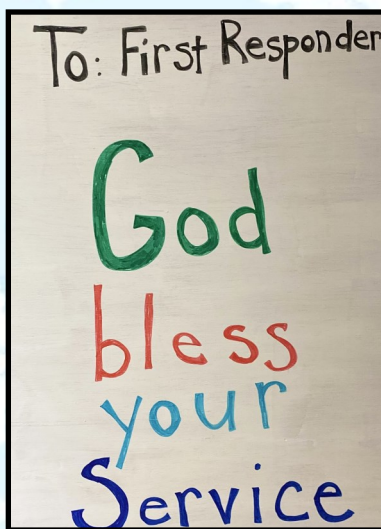 To: First Responder
God
bless
your
Service